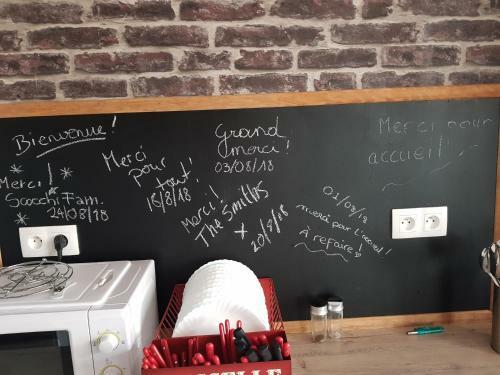 Bienvenue !
Merci !
Sacchi Fam.
24/08/18
Merci
pour
tout !
18/8/18
Grand
merci !
03/08/18
Merci !
The Smiths
x
20/8/18
01/08/18
merci pour l'accueil !
À refaire !
Merci pour
accueil !
ELLE